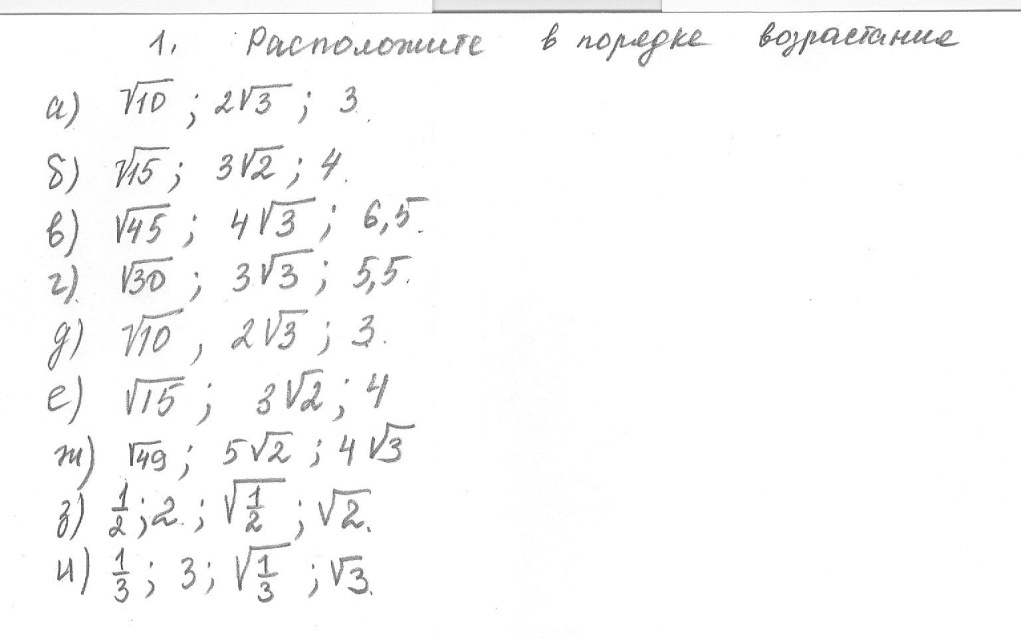 1. Расположите в порядке возрастание
а) √10 ; 2√3 ; 3.
б) √15 ; 3√2 ; 4.
в) √45 ; 4√3 ; 6,5.
г) √30 ; 3√3 ; 5,5.
д) √10 , 2√3 ; 3.
е) √15 ; 3√2 ; 4
ж) √49 ; 5√2 ; 4√3
з) 1/2 ; 2 ; √1/2 ; √2.
и) 1/3 ; 3 ; √1/3 ; √3.